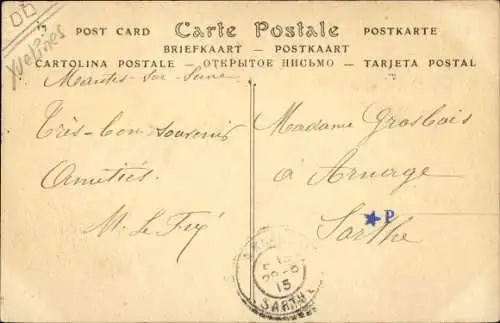 DD
Yvelines
POST CARD Carte Postale POSTKARTE
BRIEFKAART — POSTKAART
CARTOLINA POSTALE — ОТКРЫТОЕ ПИСЬМО — TARJETA POSTAL
Mantes-sur-Seine
Très-bon souvenir
Amitiés
M. Le Feÿ
Madame Grasbois
à Arnage
Sarthe
P
15
SARTHE